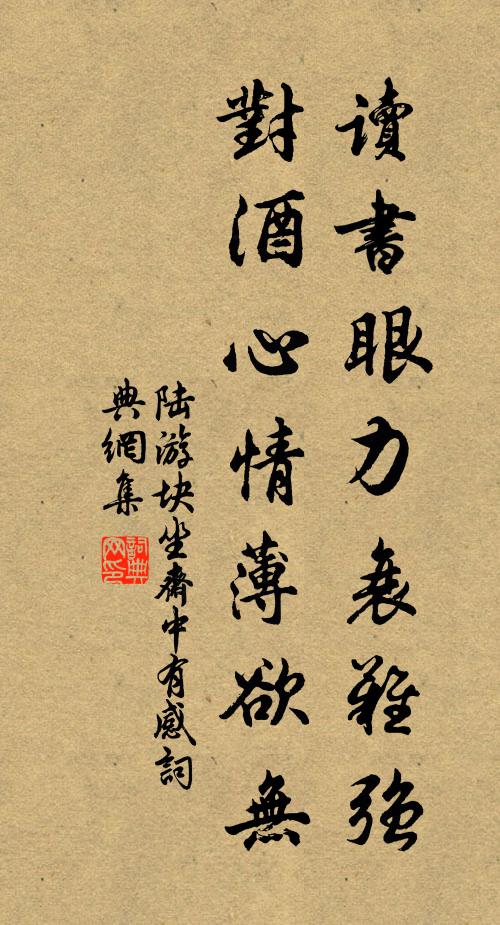 讀書眼力衰難強
對酒心情薄欲無
陆游块坐齋中有感詞
典網集
詞典
网印